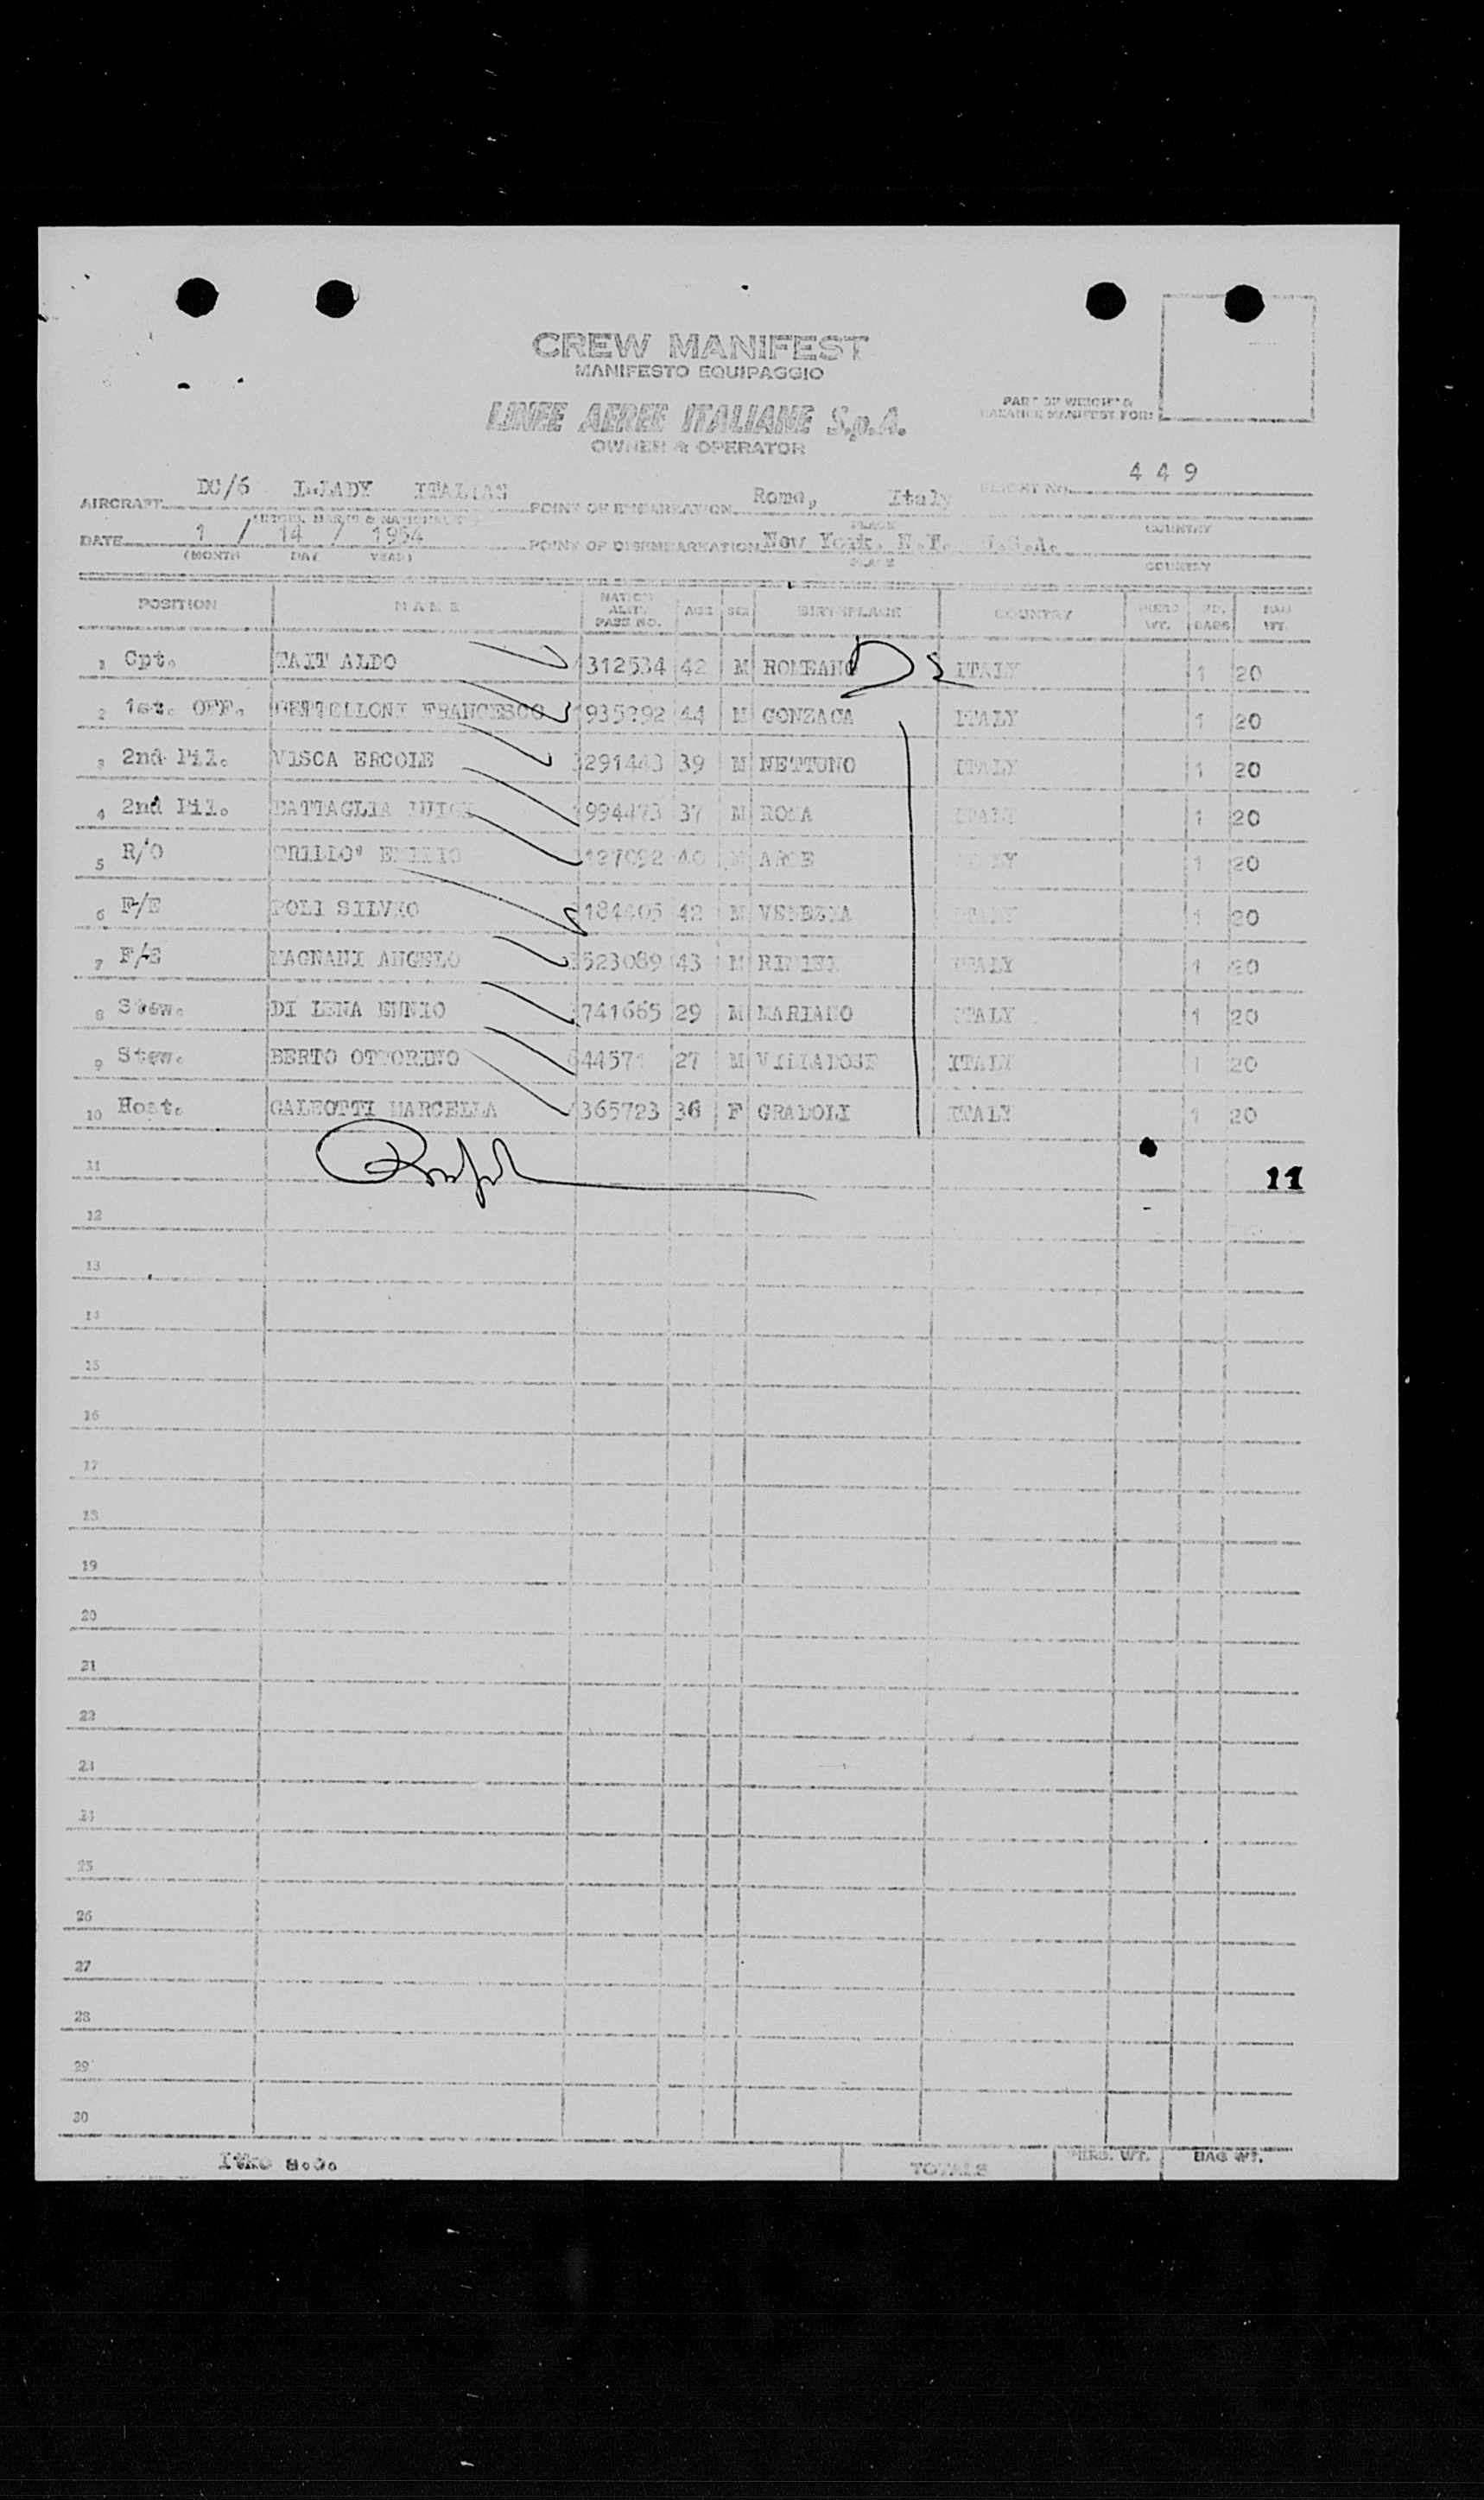 CREW MANIFEST
MANIFESTO EQUIPAGGIO
LINEE AEREE ITALIANE S.p.A.
OWNER & OPERATOR
PART OF WEIGHT &
BALANCE MANIFEST FOR:
4 4 9
AIRCRAFT DC/6 ITALIAN POINT OF EMBARKATION Rome, Italy FLIGHT NO.
PLACE COUNTRY
DATE 1 / 14 / 1954 POINT OF DISEMBARKATION New York, N.Y. U.S.A.
(MONTH DAY YEAR) PLACE COUNTRY
POSITION NAME NATION- ALITY PASS NO. AGE SEX BIRTHPLACE COUNTRY PERS WT. NO. BAGS BAG WT.
1 Cpt. TAIT ALDO 312534 42 M ITALY 1 20
2 1st. OFF. FRANCESCO 935292 44 M GONZAGA ITALY 1 20
3 2nd Pil. VISCA ERCOLE 291443 39 M NETTUNO ITALY 1 20
4 2nd Pil. BATTAGLIA LUIGI 994473 37 M ROMA ITALY 1 20
5 R/O EMILIO 40 M ARCE ITALY 1 20
6 F/E POLI SILVIO 184405 42 M VENEZIA ITALY 1 20
7 F/E MAGNANI ANGELO 523089 43 M RIMINI ITALY 1 20
8 Stew. DI LENA ENNIO 741665 29 M MARIANO ITALY 1 20
9 Stew. BERTO OTTORINO 27 M VILLADOSE ITALY 1 20
10 Host. GALEOTTI MARCELLA 365723 36 F GRADOLI ITALY 1 20
11 11
12
13
14
15
16
17
18
19
20
21
22
23
24
25
26
27
28
29
30
TOTALS PERS. WT. BAG WT.